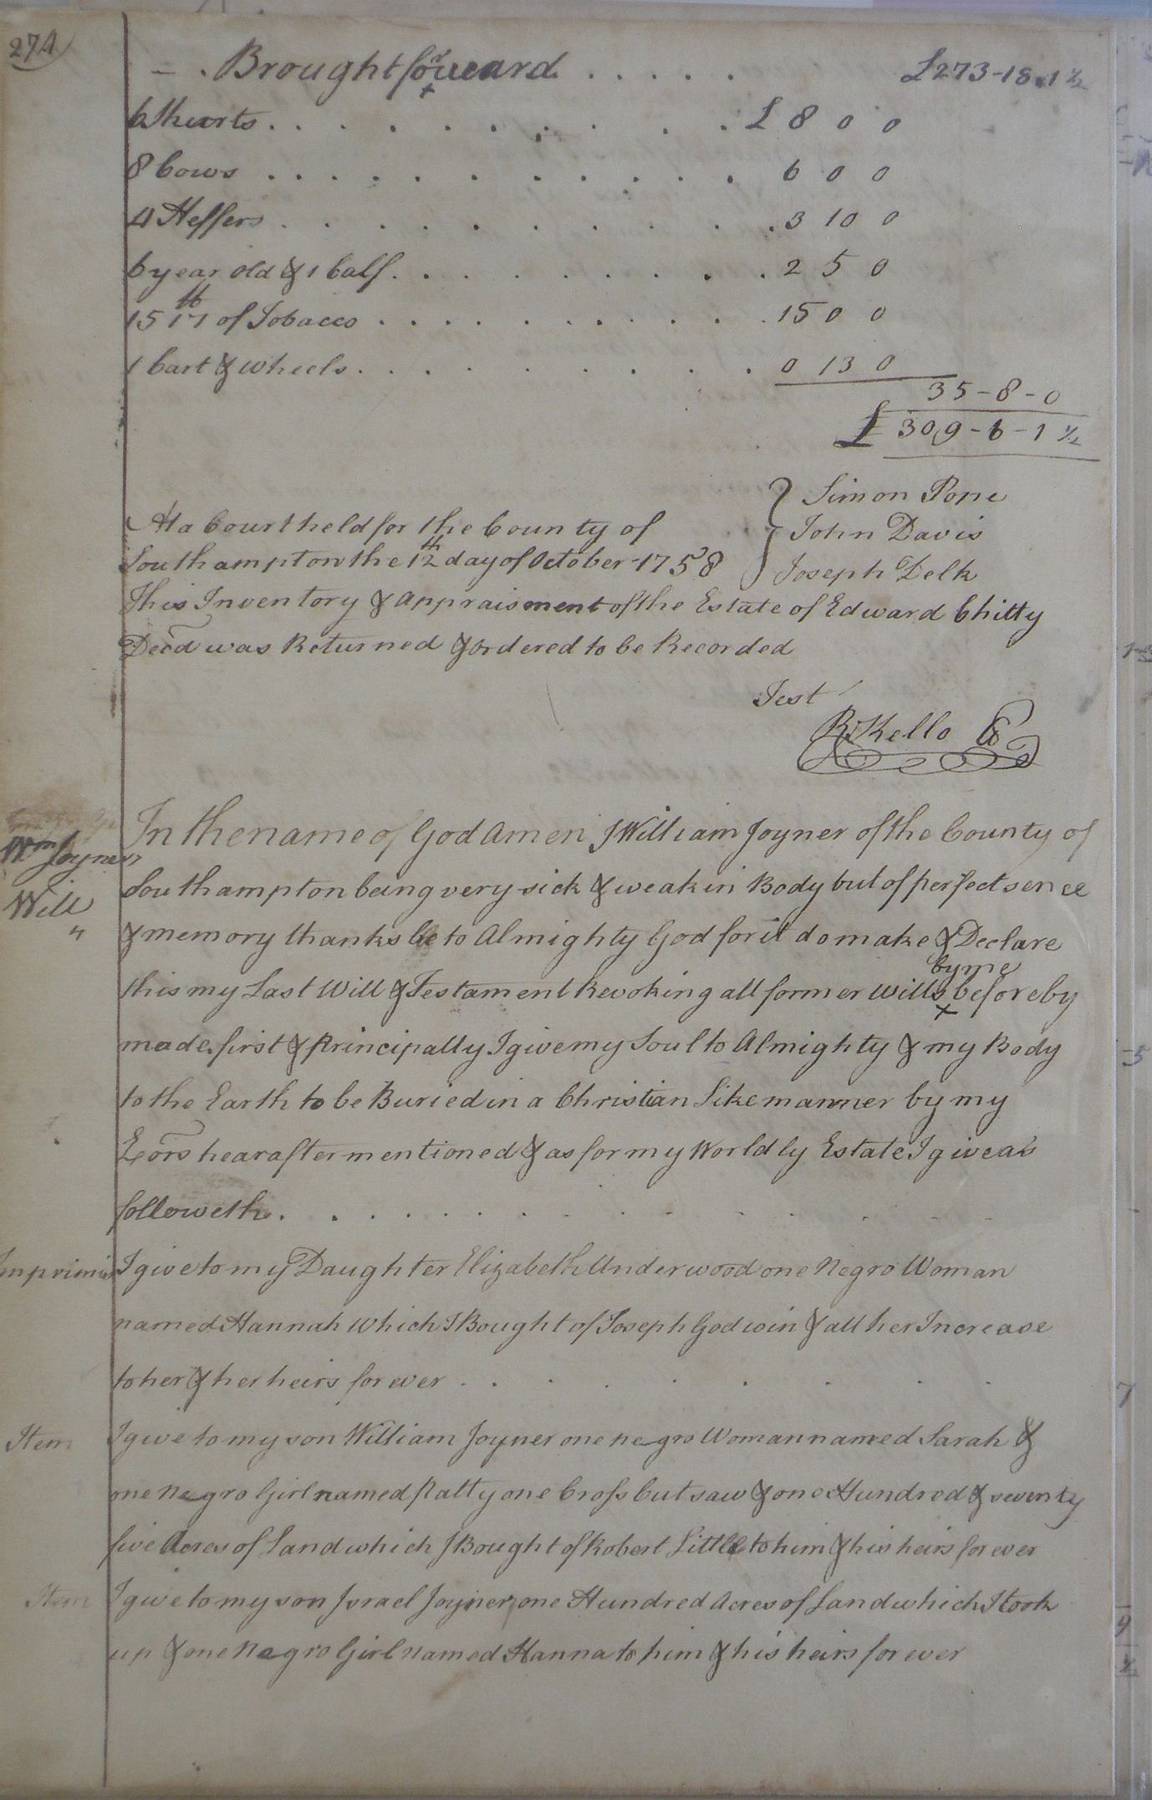 274
Brought forward . . . . . £273-18-1½
6 Shurts . . . . . . . . . . £ 8 0 0
8 Cows . . . . . . . . . . 6 0 0
4 Heffers . . . . . . . . . . 3 10 0
6 year old & 1 Calf . . . . . . . . 2 5 0
of Tobacco . . . . . . . . . 15 0 0
1 Cart & wheels . . . . . . . . . 0 13 0
35-8-0
£ 309-6-1½
Simon Pope
At a Court held for the County of
John Davis
Southampton the 12th day of October 1758
Joseph Delk
This Inventory & Appraisment of the Estate of Edward Chitty
Decd was Returned & ordered to be Recorded
Test
R Kello
In the name of God Amen I William Joyner of the County of
Wm Joyners
Southampton being very sick & weak in Body but of perfect sence
Will
"
& memory thanks be to Almighty God for it do make & Declare
by me
this my Last Will & Testament Revoking all former wills x before by
made first & Principally I give my Soul to Almighty & my Body
to the Earth to be Buried in a Christian Like manner by my
Exors hearafter mentioned & as for my Worldly Estate I give as
followeth . . . . . . . . . .
Imprimis I give to my Daughter Elizabeth Underwood one Negro Woman
named Hannah which I Bought of Joseph Godwin & all her Increase
to her & her heirs for ever . . . . . . . .
Item I give to my son William Joyner one negro Woman named Sarah &
one negro Girl named Patty one Cross Cut saw & one Hundred & seventy
five Acres of Land which I Bought of Robert Little to him & his heirs for ever
Item I give to my son Israel Joyner one Hundred Acres of Land which I took
up & one negro Girl named Hanna to him & his heirs for ever